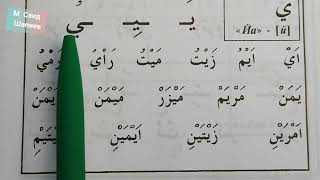 М. Саид
Шапиев
يَـ ـيِـ ـيُ
ي
«Йа» - [й]
اَيْ اَيْمُ زَيْتُ مَيْتُ رَاْيُ رَمْيُ
يَمَنْ مَرْيَمْ مَيْزَرْ مَيْمَنْ
اَمْرَيْنِ زَيْتَيْنِ اَيْمَيْنِ